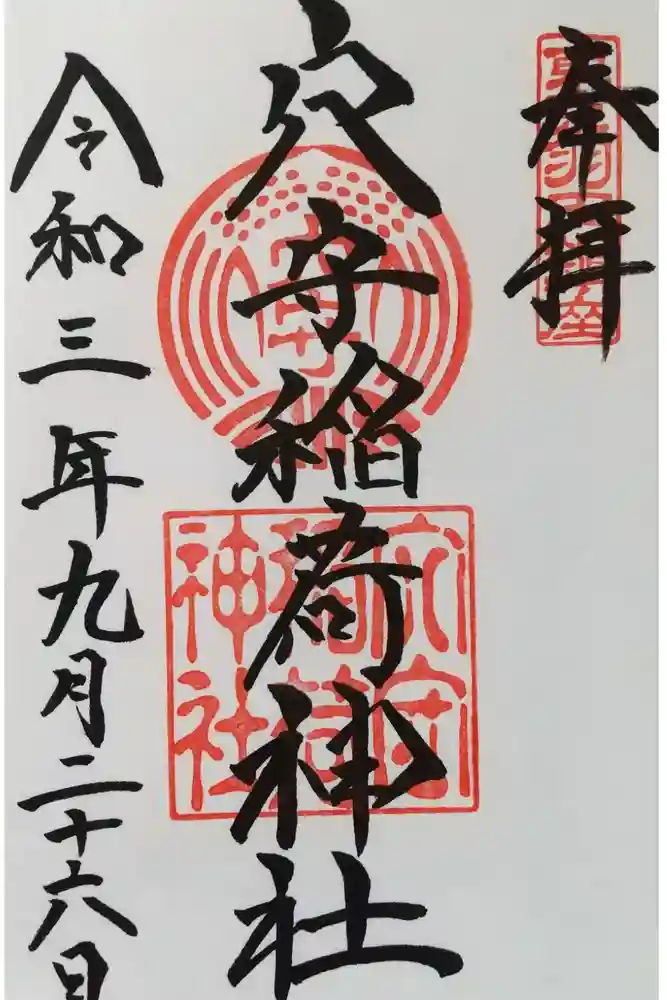 奉拝
穴守稲荷神社
穴守
稲荷
神社
令和三年九月二十六日